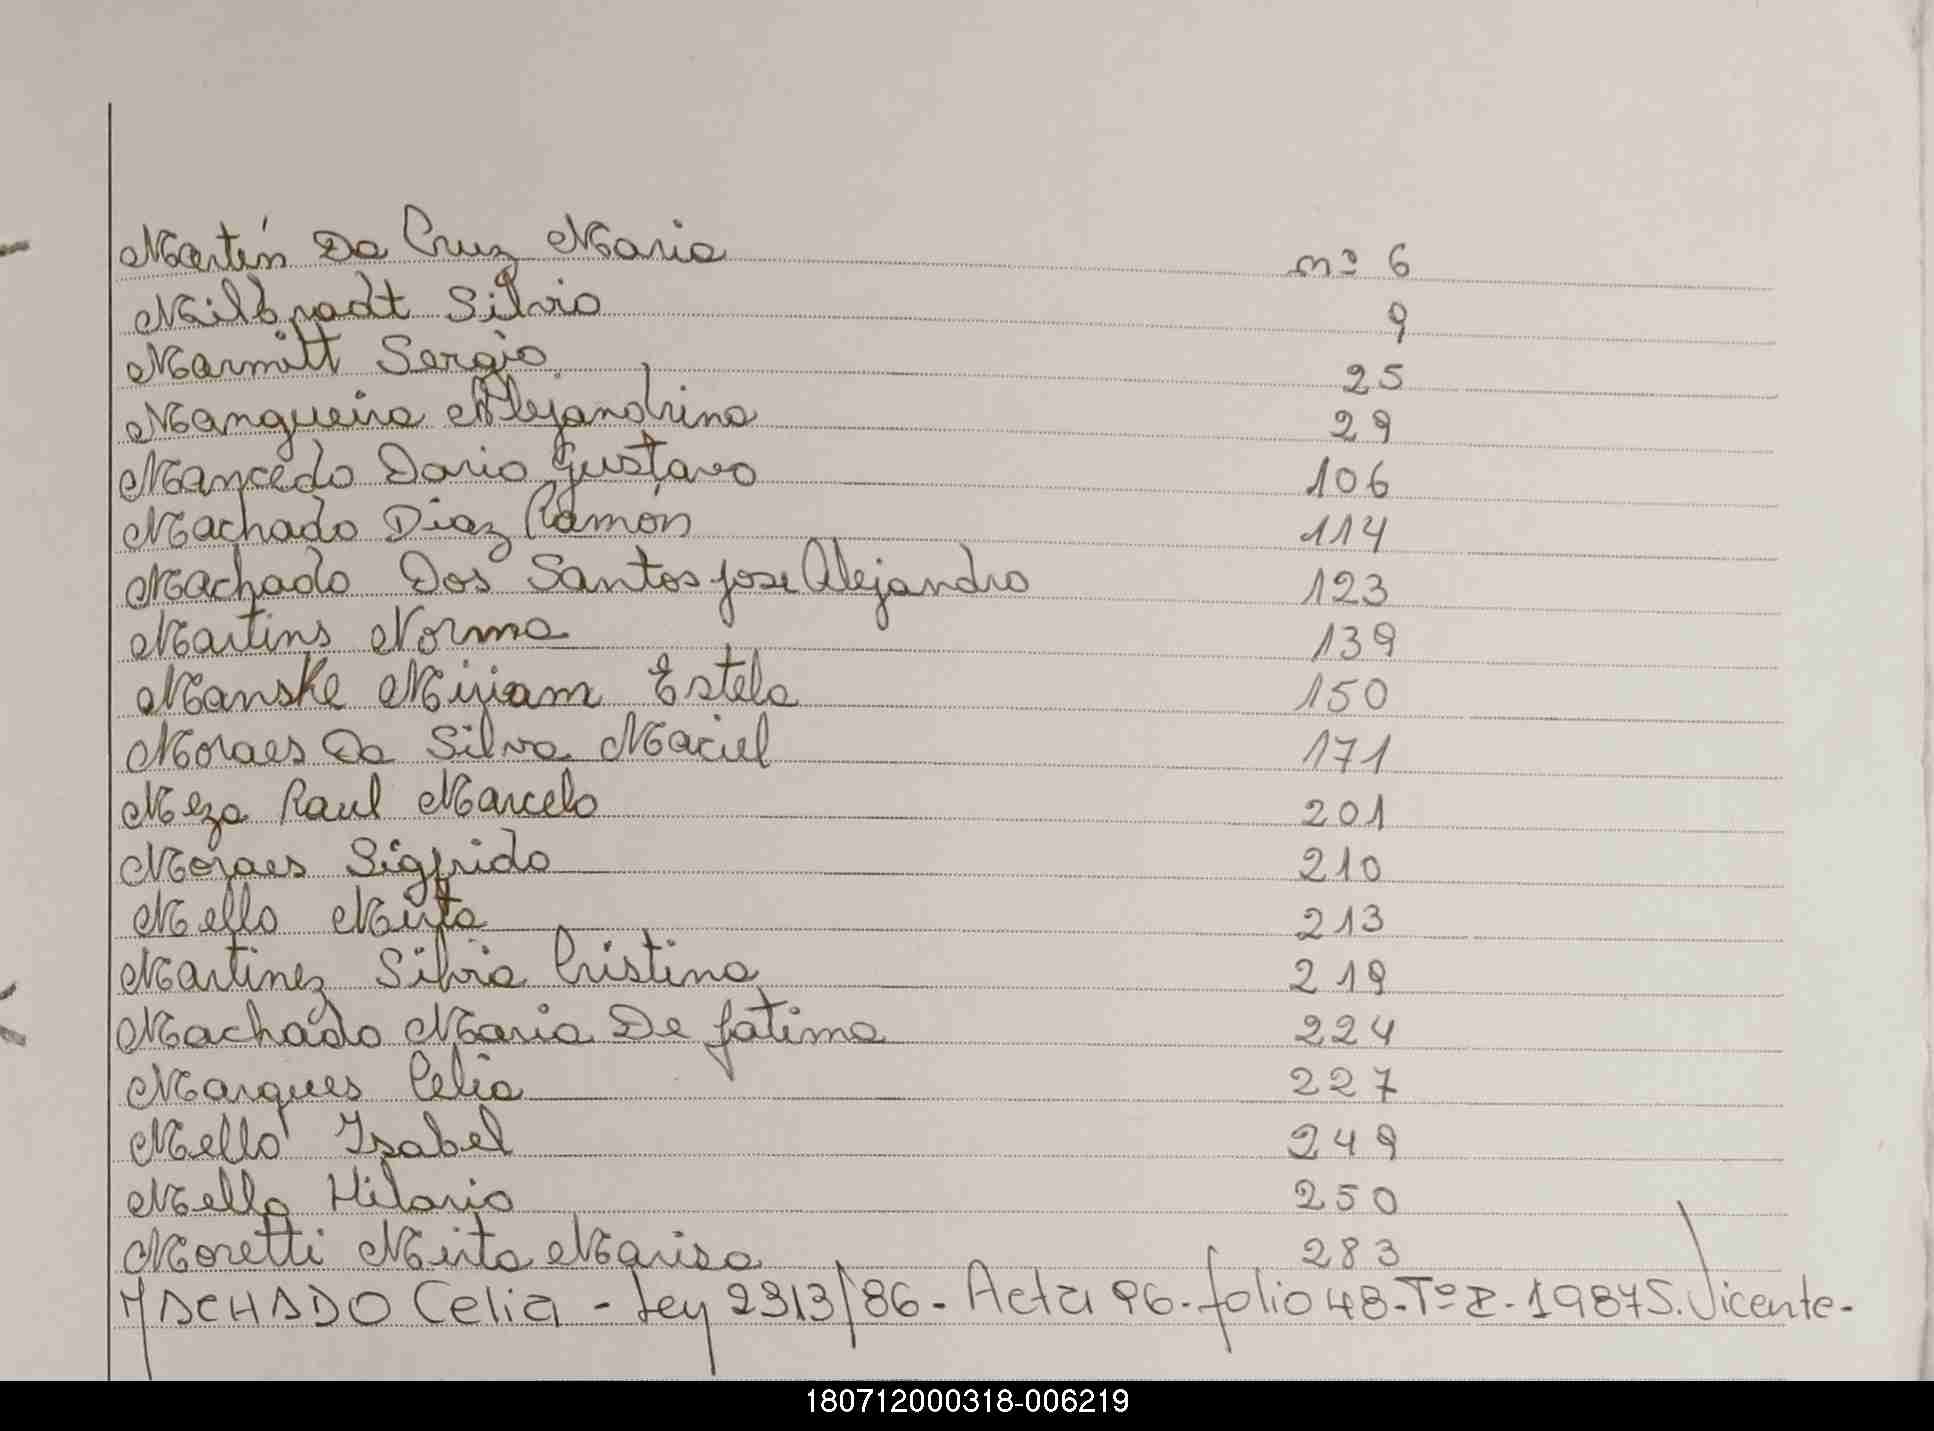 Martín Da Cruz Maria nº 6
Milbradt Silvio 9
Marmitt Sergio 25
Mangueira Alejandrina 29
Mancedo Dario Gustavo 106
Machado Diaz Ramón 114
Machado Dos Santos jose Alejandro 123
Martins Norma 139
Manske Miriam Estela 150
Moraes Da Silva Maciel 171
Meza Raul Marcelo 201
Moraes Sigfrido 210
Mello Mirta 213
Martinez Silvia Cristina 219
Machado Maria De fatima 224
Marques Celia 227
Mello Isabel 249
Mello Hilario 250
Moretti Mirta Marisa 283
MACHADO Celia - Ley 2313/86 - Acta 96 - folio 48 - Tº - 1987 S. Vicente -
180712000318-006219